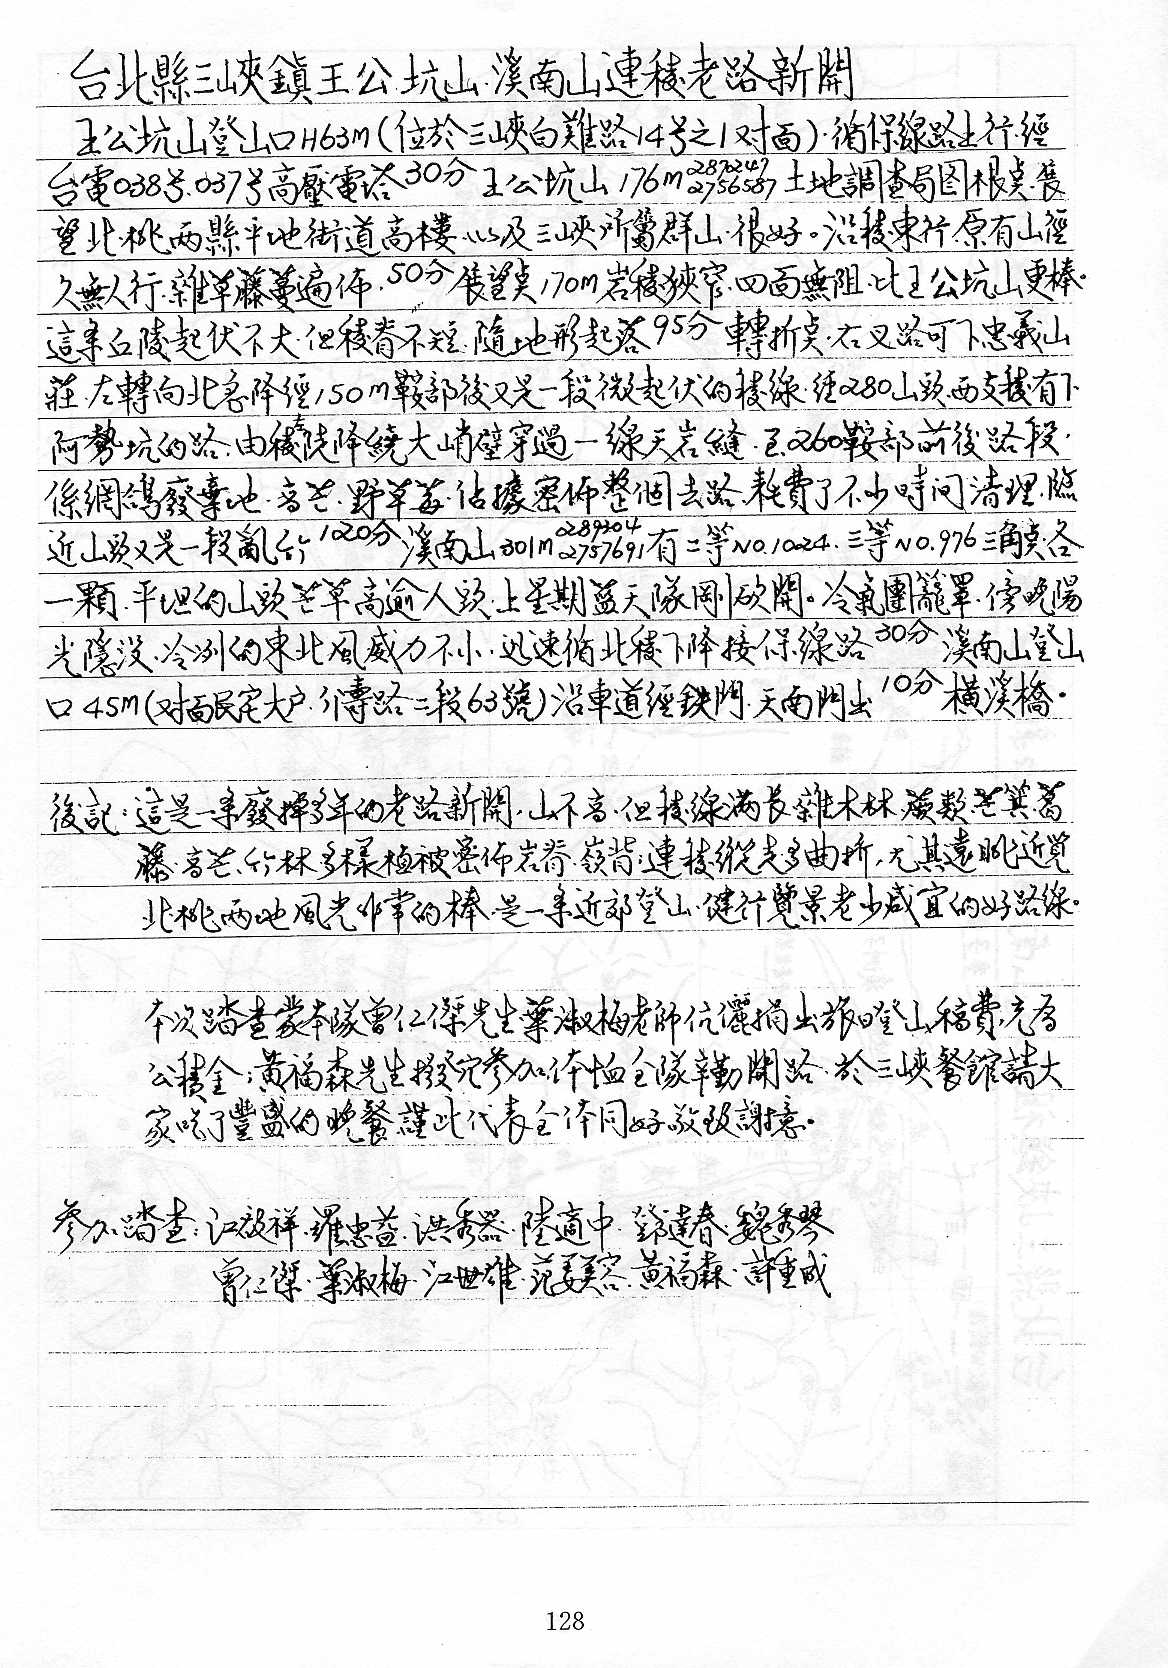 台北縣三峽鎮王公坑山.溪南山連稜老路新開
王公坑山登山口H63M(位於三峽白雞路14号之1对面).循保線路上行.經
台電038号.037号高壓電塔30分王公坑山176M 2870247 2756587土地調查局图根点.展
望北.桃兩縣平地街道高樓.以及三峽所屬群山.很好。沿稜東行.原有山徑
久無人行.雜草藤蔓遍佈.50分展望点170M岩稜狹窄.四面無阻.比王公坑山更棒。
這条丘陵起伏不大.但稜脊不短.隨地形起落95分轉折点.右叉路可下忠義山
莊.左轉向北急降經150M鞍部後又是一段微起伏的稜線.經280山頭.西支稜有下
阿勢坑的路.由稜左陡降繞大峭壁穿過一線天岩縫.至260鞍部前後路段.
係網鴿廢棄地.高芒.野草莓.佔據密佈整個去路.耗費了不少時间清理.臨
近山頭又是一段亂竹120分溪南山301M 289204 2757691有二等NO.1024.三等NO.976三角点各
一顆.平坦的山頭芒草高逾人頭.上星期藍天隊剛砍開。冷氣團籠罩.傍晚陽
光隱没.冷冽的東北風威力不小.迅速循北稜下降接保線路30分溪南山登山
口45M(对面民宅大户.介壽路二段63號)沿車道經鉄門.天南門出10分橫溪橋。
後記:這是一条廢掉多年的老路新開.山不高.但稜線滿長雜木林.蕨類.芒箕蔓
藤.高芒.竹林多樣植被密佈岩脊.嶺背;連稜縱走多曲折.尤其遠眺近覽
北桃兩地風光非常的棒.是一条近郊登山.健行覽景老少咸宜的好路線。
本次踏查蒙本隊曾仁傑先生葉淑梅老師伉儷捐出旅日登山稿費.充為
公積金;黃福森先生撥冗參加.体恤全隊辛勤開路.於三峽餐館請大
家吃了豐盛的晚餐謹此代表全体同好敬致謝意。
參加踏查:江啟祥.羅忠益.洪秀器.陸適中.鄧達春.魏秀琴
曾仁傑.葉淑梅.江世雄.范姜美容.黃福森.許重成
128